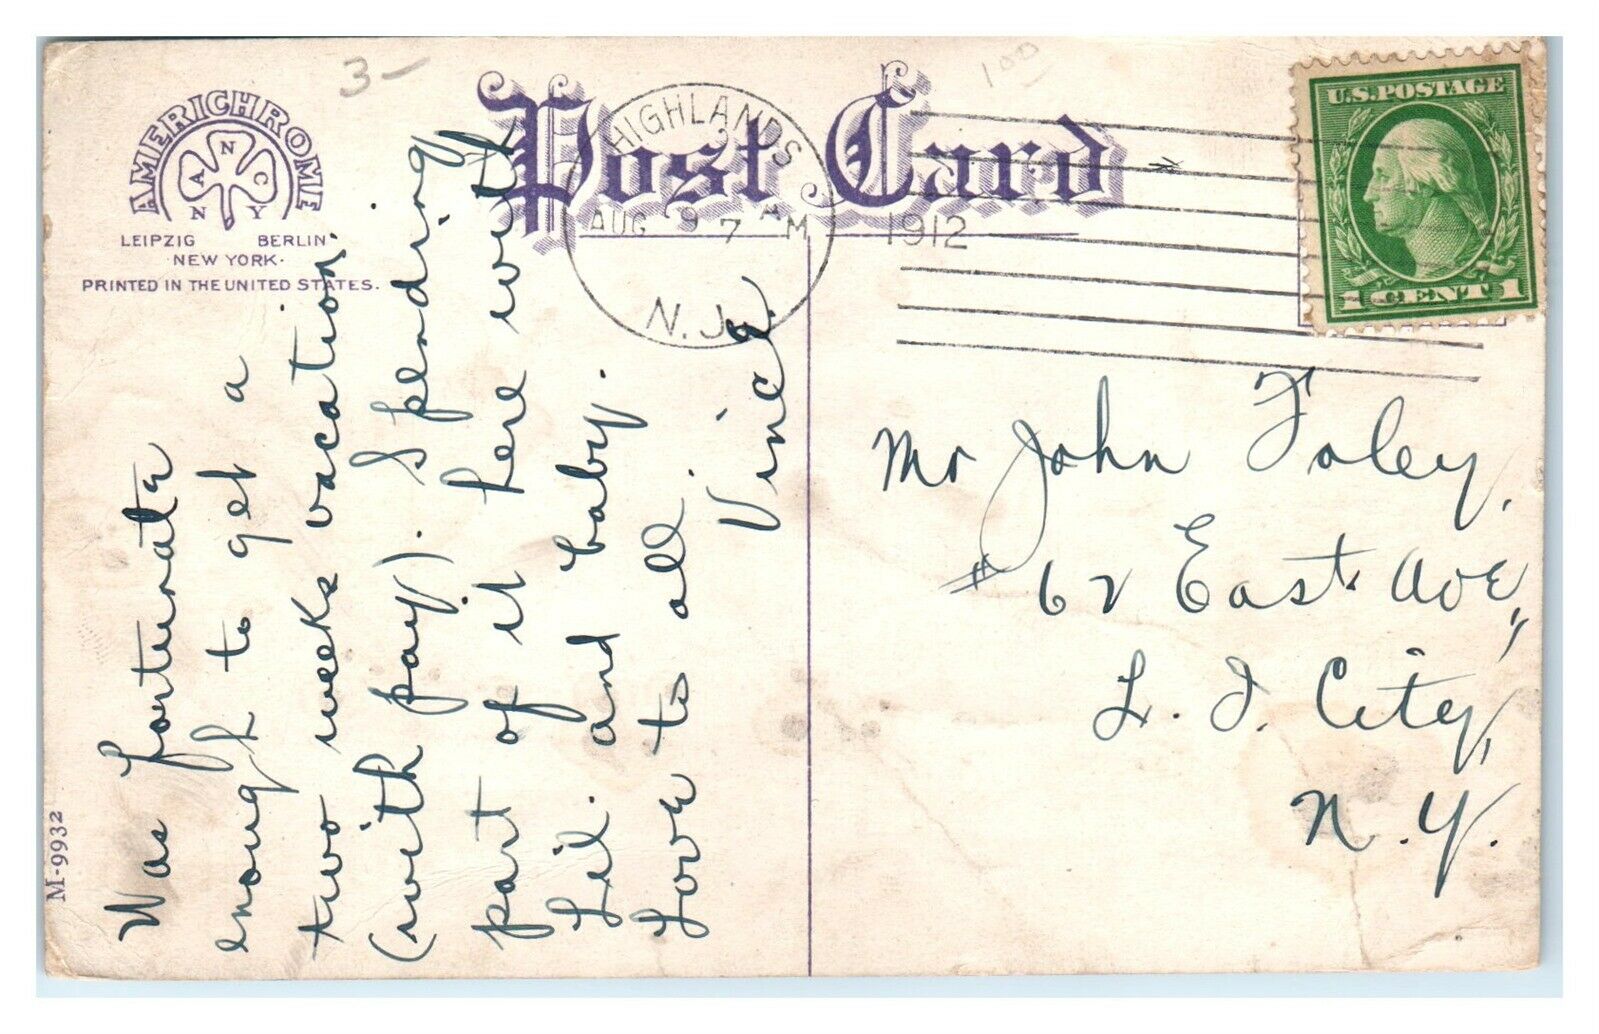 3-
100
AMERICHROME
A N C
N Y
LEIPZIG BERLIN
NEW YORK.
PRINTED IN THE UNITED STATES.
Post Card
HIGHLANDS
AUG 9 7 AM
1912
N.J.
U.S. POSTAGE
1 CENT 1
Was fortunate
enough to get a
two weeks vacation.
(with pay). Spending
part of it here with
Lil. and baby.
Love to all.
Vince.
Mr John Foley,
# 62 East Ave,
L. I. City,
N.Y.
M-9932